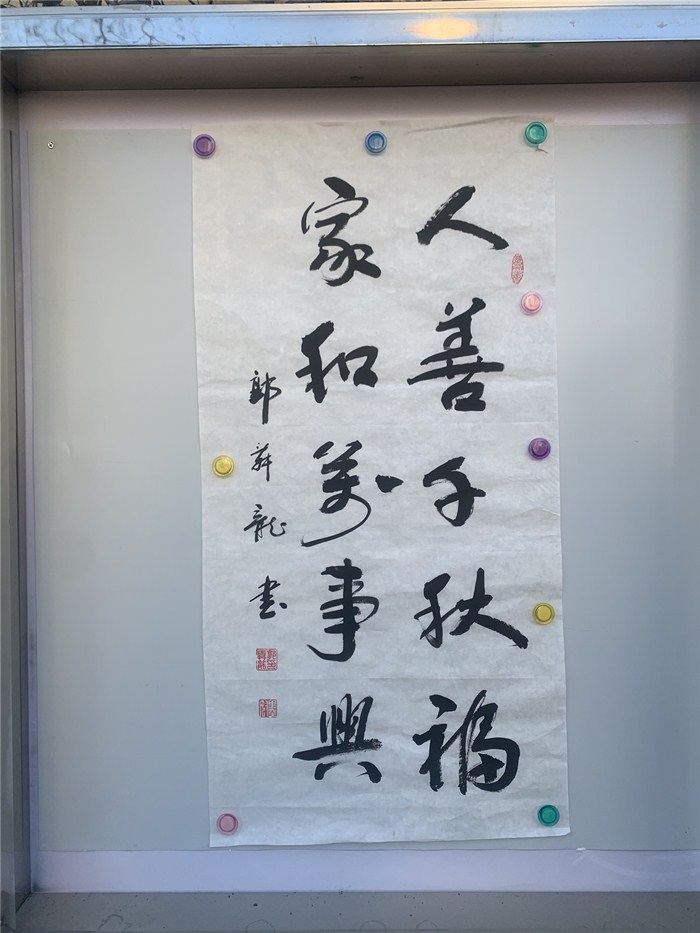 人善千秋福
家和萬事興
龍書